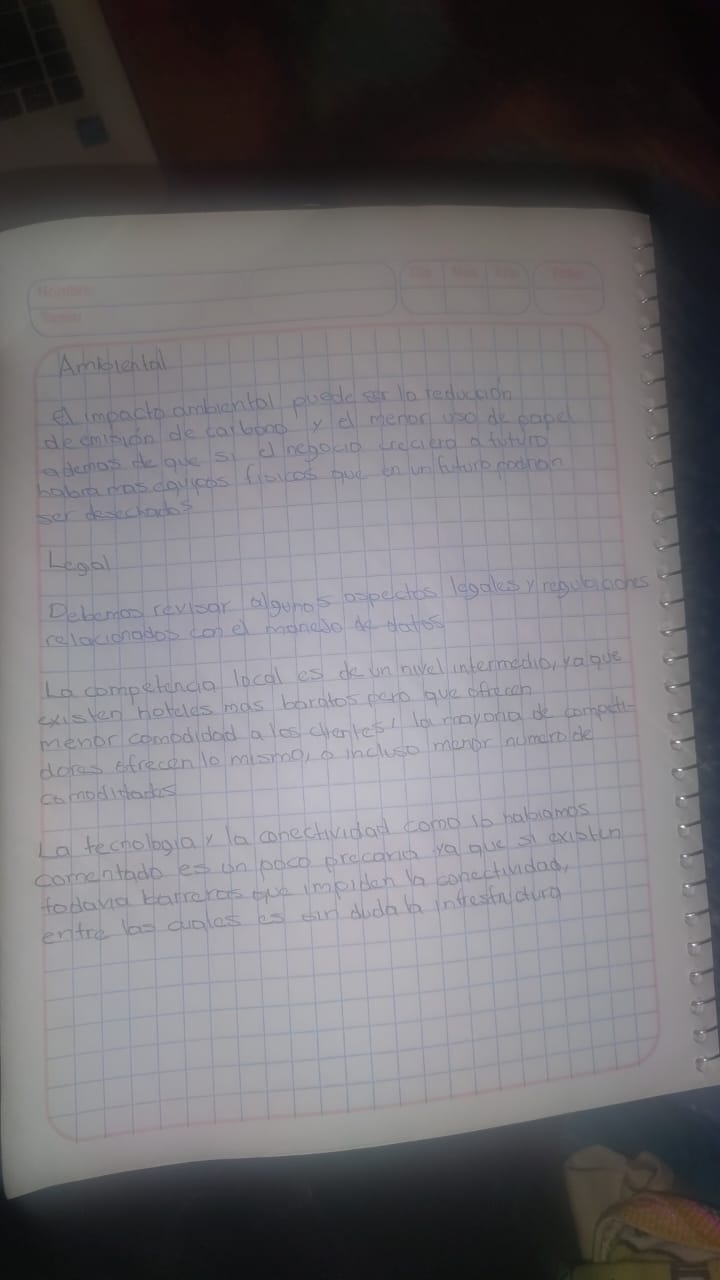 Nombre
Ambiental
el impacto ambiental puede ser la reducción
de emisión de carbono y el menor uso de papel
ademas de que si el negocio creciera a futuro
habra mas equipos fisicos que en un futuro podrian
ser desechados
Legal
Debemos revisar algunos aspectos legales y regulaciones
relacionados con el manejo de datos
La competencia local es de un nivel intermedio, ya que
existen hoteles mas baratos pero que ofrecen
menor comodidad a los clientes, la mayoria de competi-
dores ofrecen lo mismo, o incluso menor numero de
comodidades
La tecnologia y la conectividad como lo habiamos
comentado es un poco precaria ya que si existen
todavia barreras que impiden la conectividad,
entre las cuales es sin duda la infrestructura